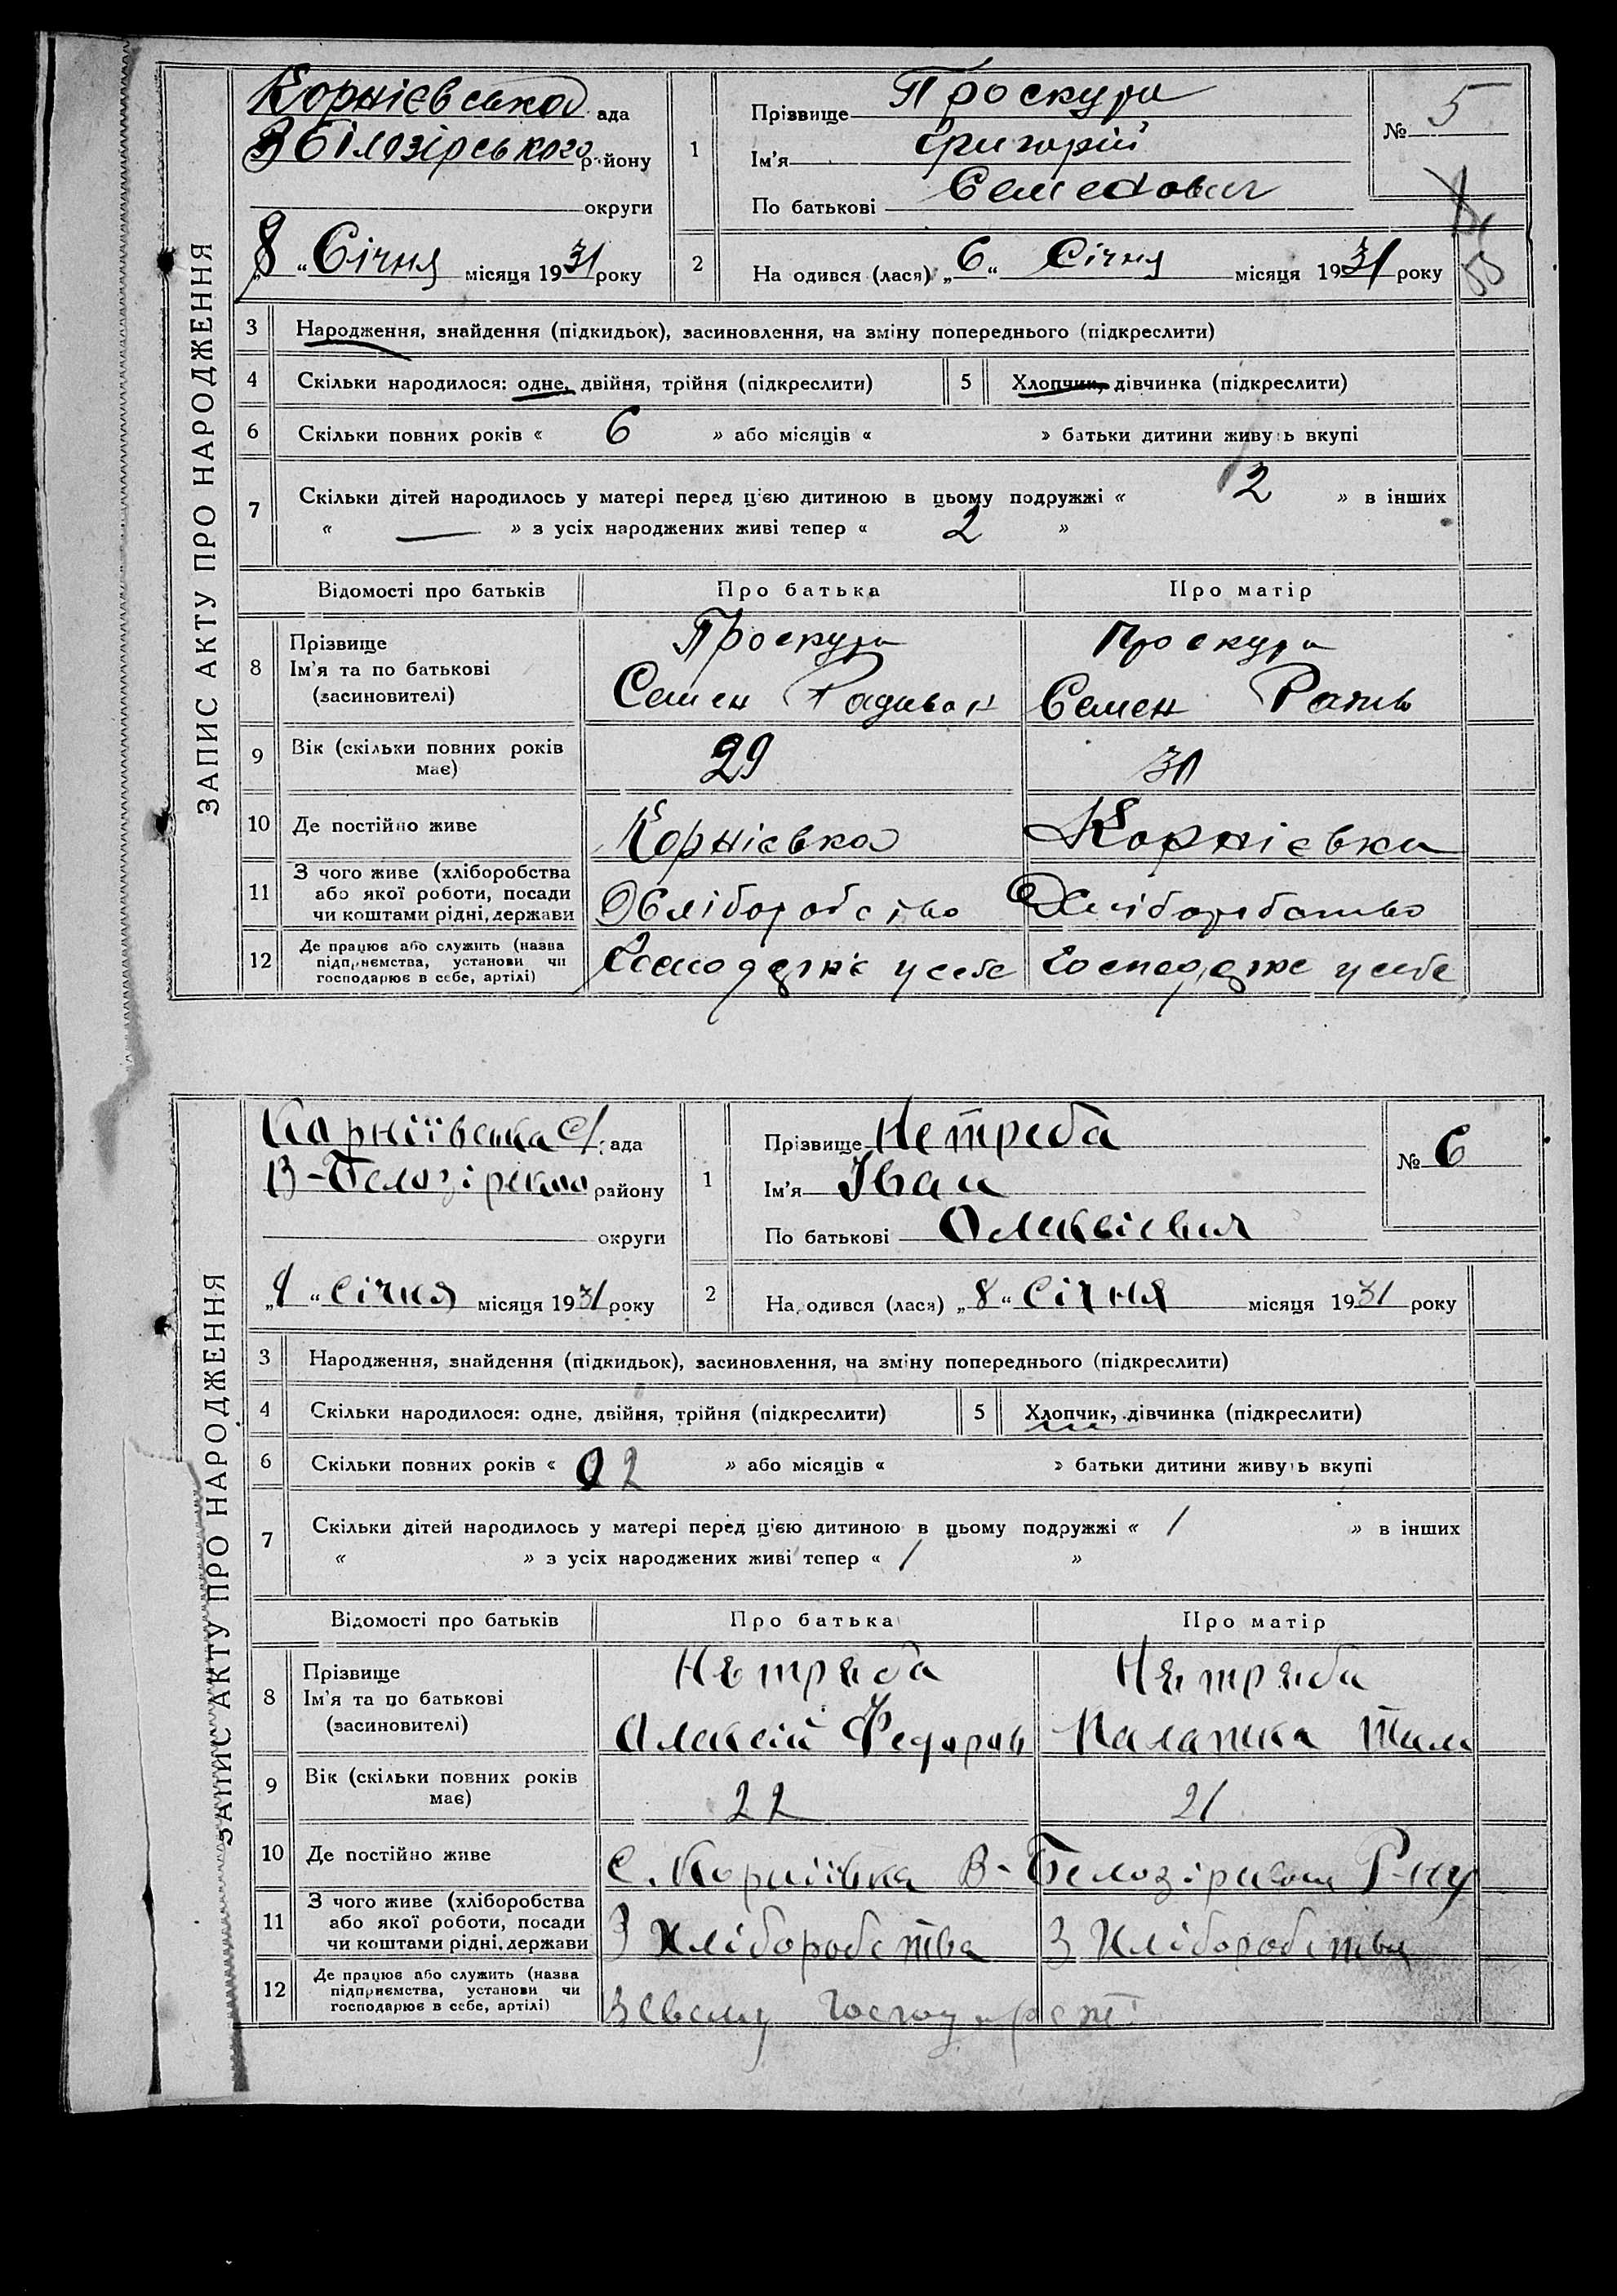 ЗАПИС АКТУ ПРО НАРОДЖЕННЯ
Корнієвська рада
В Білозірського району
округи
„8“ Січня місяця 1931 року
1
Прізвище Проскура
Ім'я Григорій
По батькові Семенович
№ 5
2 Народився (лася) „6“ Січня місяця 1931 року
3 Народження, знайдення (підкидьок), засиновлення, на зміну попереднього (підкреслити)
4 Скільки народилося: одне, двійня, трійня (підкреслити) 5 Хлопчик, дівчинка (підкреслити)
6 Скільки повних років « 6 » або місяців « » батьки дитини живуть вкупі
7 Скільки дітей народилось у матері перед цією дитиною в цьому подружжі « 2 » в інших
« — » з усіх народжених живі тепер « 2 »
Відомості про батьків Про батька Про матір
8 Прізвище
Ім'я та по батькові
(засиновителі)
Проскура Проскура
Семен Семен
9 Вік (скільки повних років має) 29
10 Де постійно живе Корнієвка Корнієвка
11 З чого живе (хліборобства
або якої роботи, посади
чи коштами рідні, держави
Хліборобство
12 Де працює або служить (назва
підприємства, установи чи
господарює в себе, артілі)
у себе у себе
ЗАПИС АКТУ ПРО НАРОДЖЕННЯ
Карніївська с/рада
району
округи
„9“ січня місяця 1931 року
1
Прізвище Нетреба
Ім'я Іван
По батькові
№ 6
2 Народився (лася) „8“ січня місяця 1931 року
3 Народження, знайдення (підкидьок), засиновлення, на зміну попереднього (підкреслити)
4 Скільки народилося: одне, двійня, трійня (підкреслити) 5 Хлопчик, дівчинка (підкреслити)
6 Скільки повних років « 2 » або місяців « » батьки дитини живуть вкупі
7 Скільки дітей народилось у матері перед цією дитиною в цьому подружжі « 1 » в інших
« » з усіх народжених живі тепер « 1 »
Відомості про батьків Про батька Про матір
8 Прізвище
Ім'я та по батькові
(засиновителі)
Нетреба Нетреба
Алексій Федоров
9 Вік (скільки повних років має) 22 21
10 Де постійно живе С. Корніївка В-Белозірского Р-ну
11 З чого живе (хліборобства
або якої роботи, посади
чи коштами рідні, держави
З Хліборобства З Хліборобства
12 Де працює або служить (назва
підприємства, установи чи
господарює в себе, артілі)